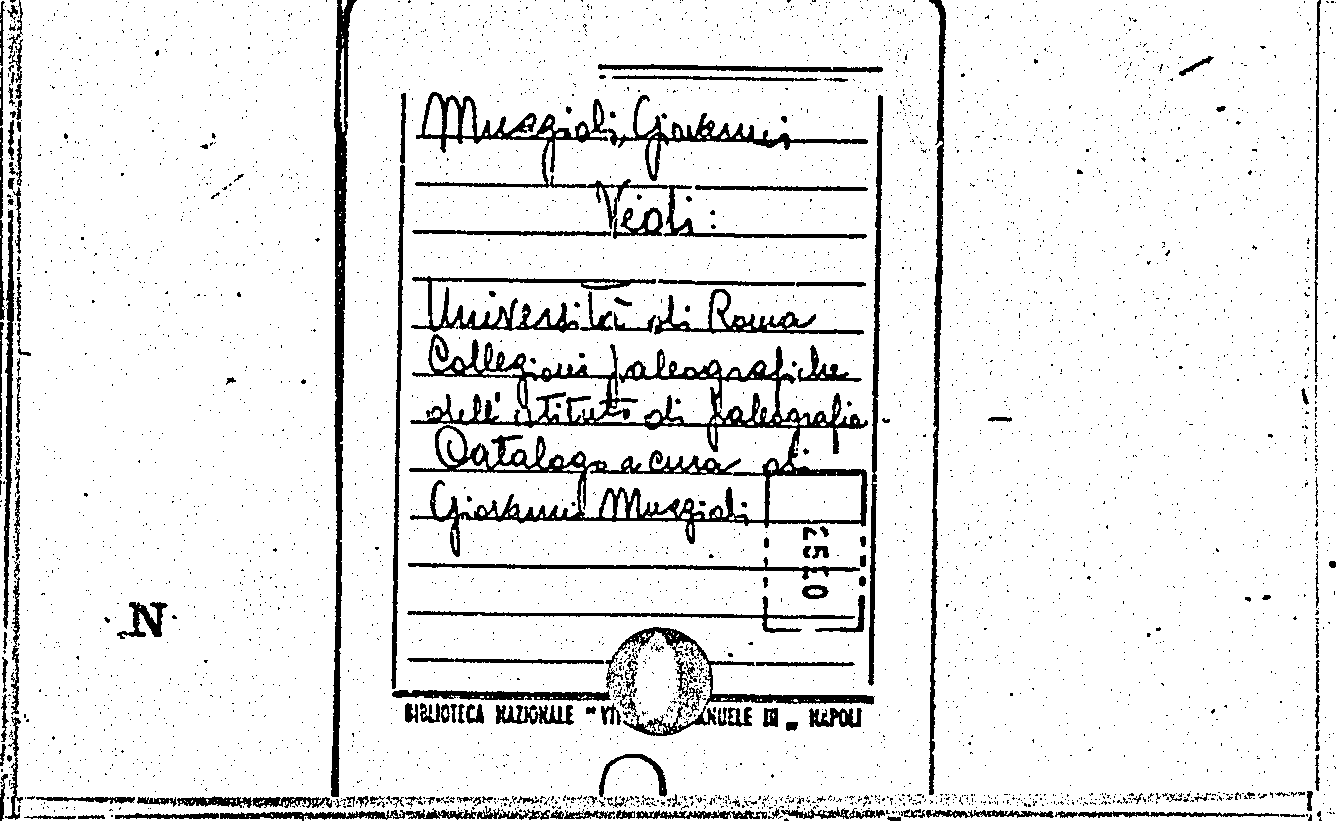 Muzzioli, Giovanni
Vedi:
Università di Roma
Collezioni paleografiche
dell'istituto di paleografia.
Catalogo a cura di
Giovanni Muzzioli
0352
N
BIBLIOTECA NAZIONALE " ANUELE III „ NAPOLI